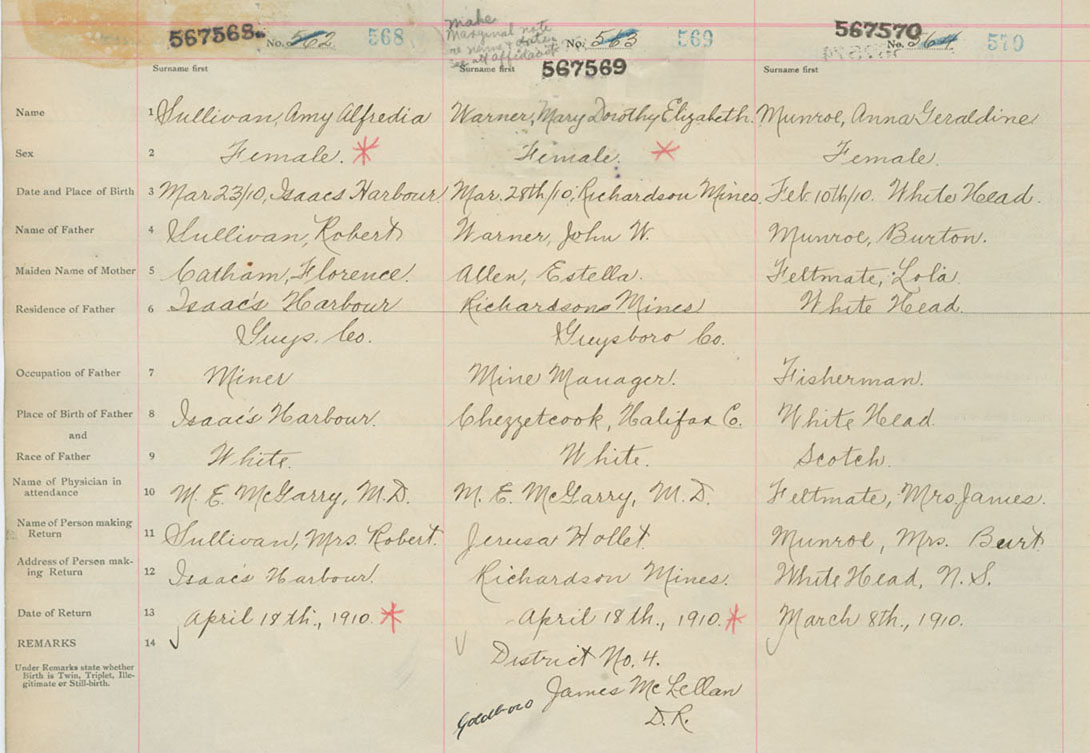 567568. No. 562 568
make
Marginal note
re name & date
see aff affidavit
No. 563 569
567569
567570
No. 564 570
Surname first Surname first Surname first
Name 1 Sullivan, Amy Alfredia Warner, Mary Dorothy Elizabeth. Munroe, Anna Geraldine
Sex 2 Female. * Female. * Female.
Date and Place of Birth 3 Mar. 23/10, Isaacs Harbour Mar. 28th/10, Richardson Mines. Feb. 10th/10. White Head.
Name of Father 4 Sullivan, Robert Warner, John W. Munroe, Burton.
Maiden Name of Mother 5 Catham, Florence. Allen, Estella. Feltmate, Lola
Residence of Father 6 Isaac's Harbour Richardsons Mines White Head.
Guys. Co. Guysboro Co.
Occupation of Father 7 Miner Mine Manager. Fisherman.
Place of Birth of Father 8 Isaac's Harbour. Chezzetcook, Halifax C. White Head.
and
Race of Father 9 White. White. Scotch.
Name of Physician in
attendance 10 M. E. McGarry, M.D. M. E. McGarry, M.D. Feltmate, Mrs. James.
Name of Person making
Return 11 Sullivan, Mrs. Robert. Jerusa Hollet. Munroe, Mrs. Burt.
Address of Person mak-
ing Return 12 Isaac's Harbour. Richardson Mines. White Head, N.S.
Date of Return 13 April 18th., 1910. * April 18th., 1910. * March 8th., 1910.
REMARKS 14
Under Remarks state whether
Birth is Twin, Triplet, Ille-
gitimate or Still-birth.
District No. 4.
James McLellan
Goldboro D.R.